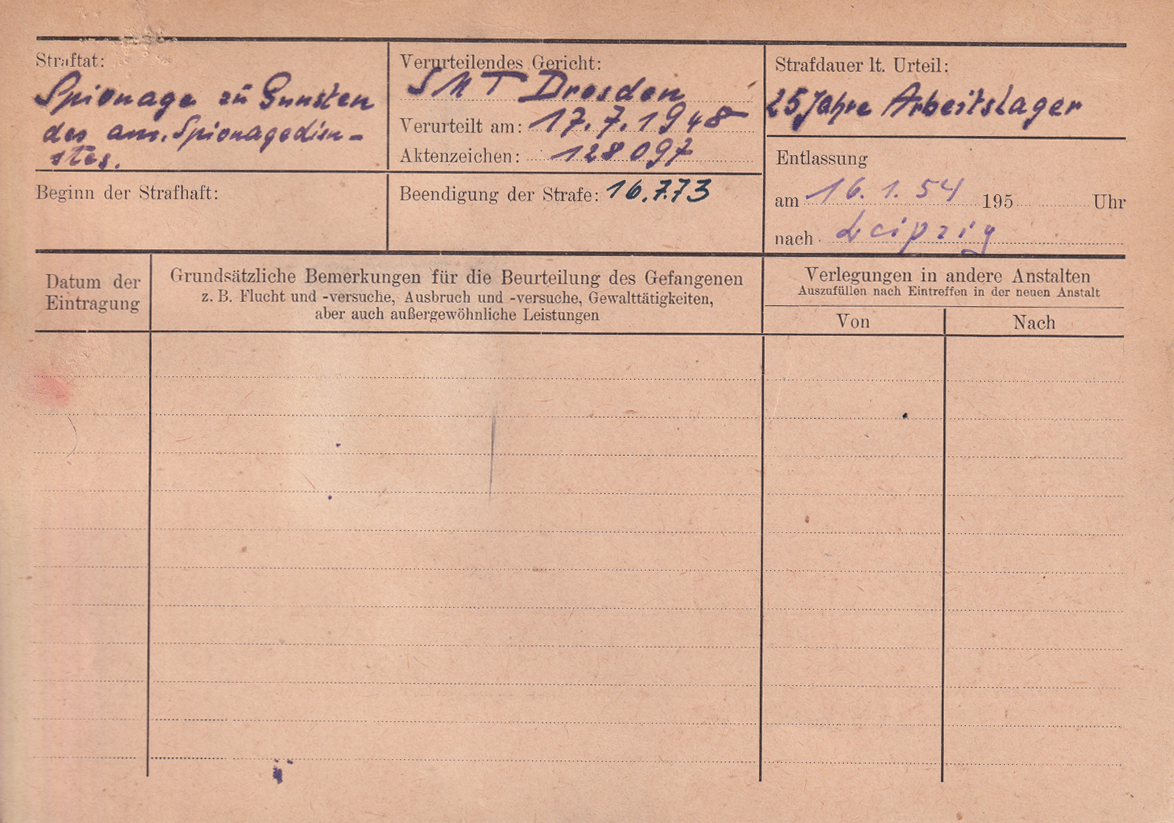 Straftat:
Spionage zu Gunsten
des am. Spionagedien-
stes.
Verurteilendes Gericht:
SMT Dresden
Verurteilt am: 17.7.1948
Aktenzeichen: 128 097
Strafdauer lt. Urteil:
25 Jahre Arbeitslager
Beginn der Strafhaft:
Beendigung der Strafe: 16.7.73
Entlassung
am 16.1.54 195 Uhr
nach Leipzig
Datum der
Eintragung
Grundsätzliche Bemerkungen für die Beurteilung des Gefangenen
z. B. Flucht und -versuche, Ausbruch und -versuche, Gewalttätigkeiten,
aber auch außergewöhnliche Leistungen
Verlegungen in andere Anstalten
Auszufüllen nach Eintreffen in der neuen Anstalt
Von Nach